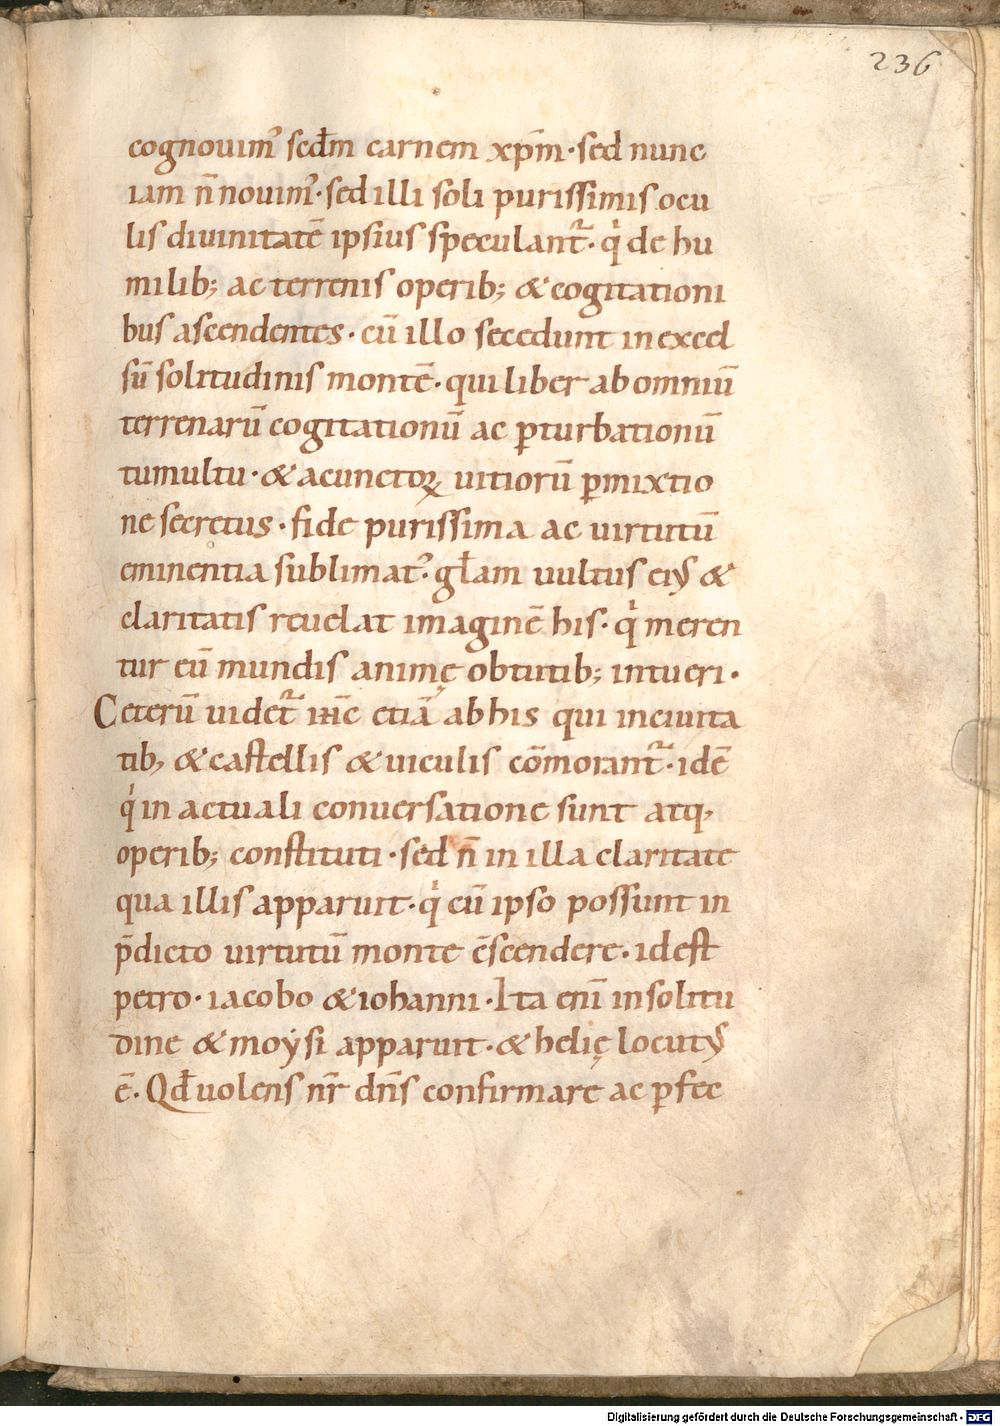 236
cognouim᾿ scd̄m carnem xp̄m · sed nunc
iam n̄ nouim᾿ · sed illi soli purissimis ocu
lis diuinitatē ipsius speculant᷑ · qͥ de hu
milib; ac terrenis operib; & cogitationi
bus ascendentes · cū illo secedunt in excel
sū solitudinis montē · qui liber ab omniū
terrenarū cogitationū ac ꝑturbationū
tumultu · & a cunctoꝝ uitiorū ꝑmixtio
ne secretus · fide purissima ac uirtutū
eminentia sublimat᾿ · gl̄am uultus eiꝰ &
claritatis reuelat imaginē his · qͥ meren
tur eū mundis animę obtutib; intueri ·
Ceterū uidet᷑ ihc̄ etiā ab his qui in ciuita
tib; & castellis & uiculis cōmorant᷑ · idē
qͥ in actuali conuersatione sunt atq;
operib; constituti · sed n̄ in illa claritate
qua illis apparuit · qͥ cū ipso possunt in
p̄dicto uirtutū monte c̄scendere · id est
petro · iacobo & iohanni · Ita eni̅ in solitu
dine & moẏsi apparuit · & helię locutꝰ
ē · Qd̄ uolens nr̄ dn̄s confirmare ac ꝑfec
Digitalisierung gefördert durch die Deutsche Forschungsgemeinschaft - DFG